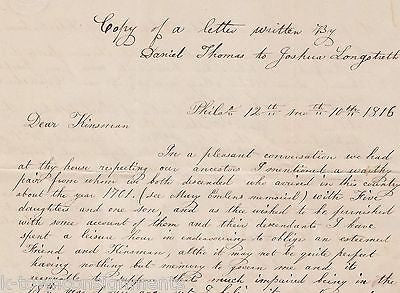 Copy of a letter written By
Daniel Thomas to Joshua Longstreth
Philada 12th mth 10th 1816
Dear Kinsman
In a pleasant conversation we had
at thy house respecting our ancestors I mentioned a worthy
pair from whom we both descended who arived in this country
about the year 1701. (see Mary Emlens memorial) with Five
daughters and one son, and as thee wished to be furnished
with some account of them and their descendants I have
spent a leisure hour in endeavouring to oblige an esteemed
Friend and Kinsman, altho it may not be quite perfect
having nothing but memory to govern me and its
much impaired being in the